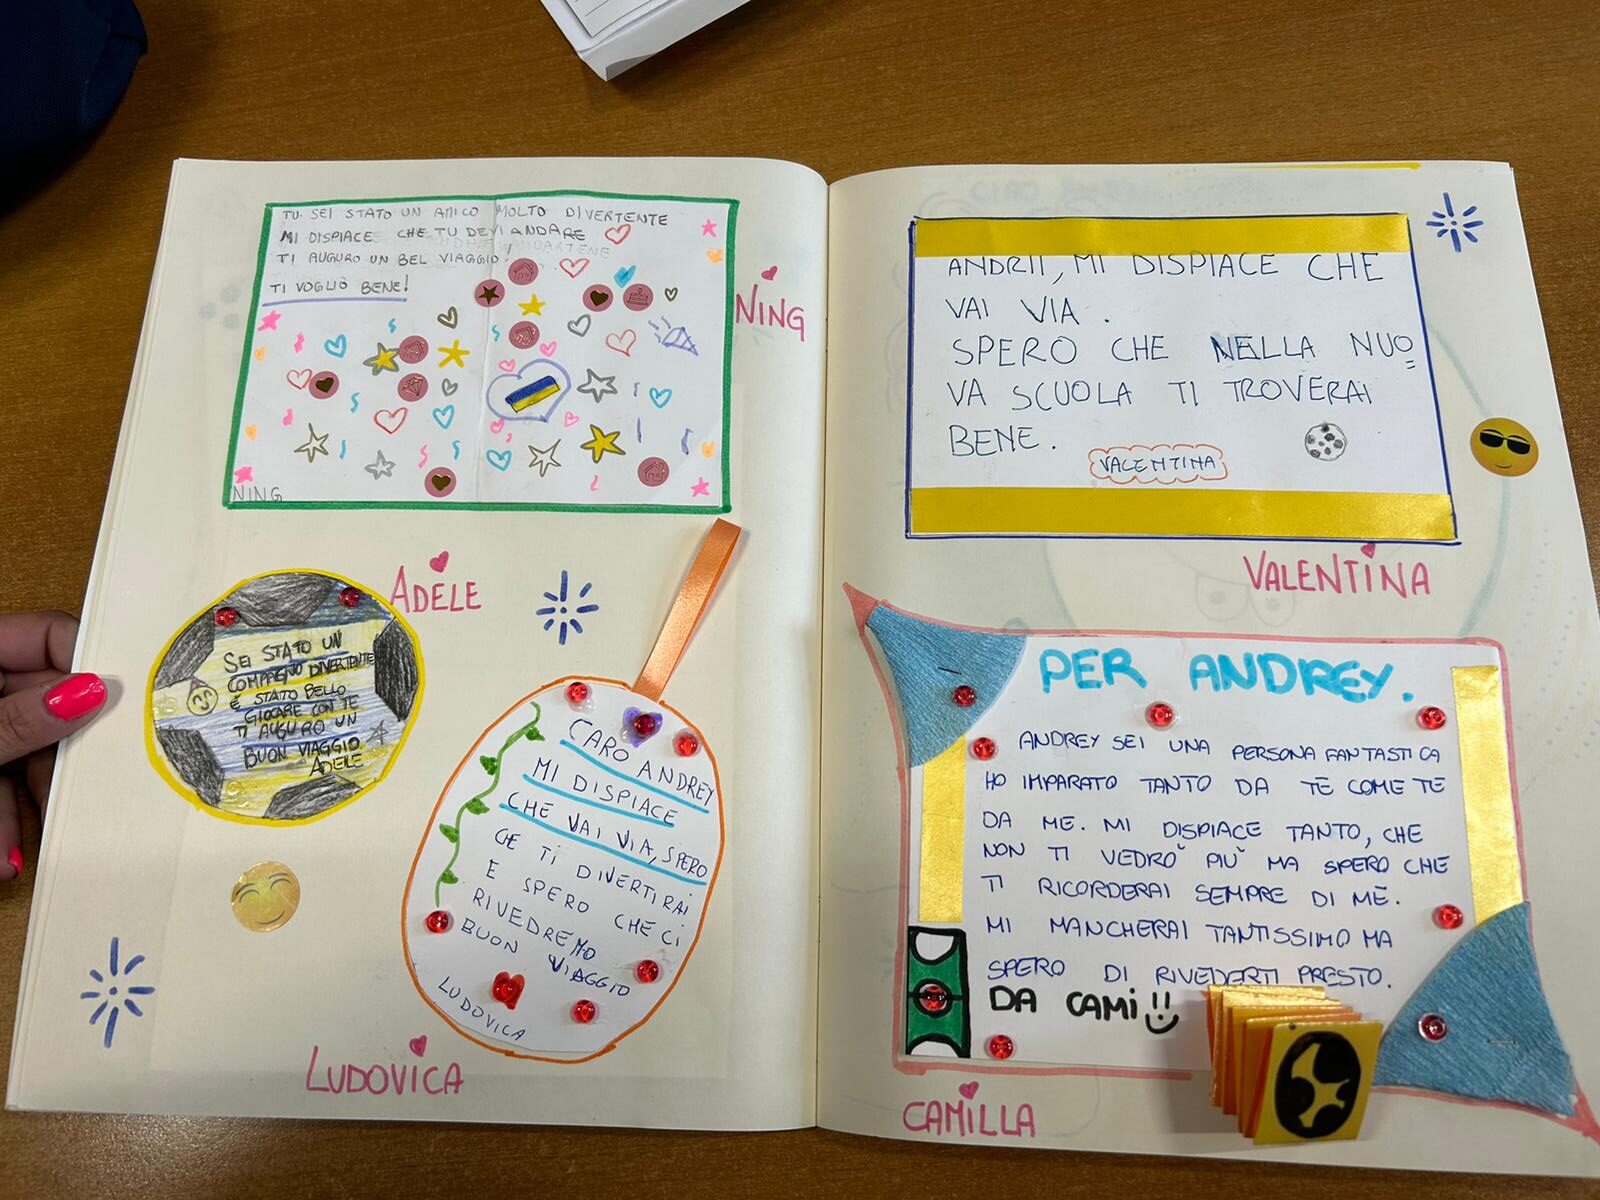 TU SEI STATO UN AMICO MOLTO DIVERTENTE
MI DISPIACE CHE TU DEVI ANDARE
TI AUGURO UN BEL VIAGGIO!
TI VOGLIO BENE!
NING
NING
ADELE
SEI STATO UN
COMPAGNO DIVERTENTE
È STATO BELLO
GIOCARE CON TE
TI AUGURO UN
BUON VIAGGIO
ADELE
CARO ANDREY
MI DISPIACE
CHE VAI VIA, SPERO
CHE TI DIVERTIRAI
E SPERO CHE CI
RIVEDREMO
BUON VIAGGIO
LUDOVICA
LUDOVICA
ANDRII, MI DISPIACE CHE
VAI VIA.
SPERO CHE NELLA NUO
VA SCUOLA TI TROVERAI
BENE.
VALENTINA
VALENTINA
PER ANDREY.
ANDREY SEI UNA PERSONA FANTASTICA
HO IMPARATO TANTO DA TE COME TE
DA ME. MI DISPIACE TANTO, CHE
NON TI VEDRÒ PIÙ MA SPERO CHE
TI RICORDERAI SEMPRE DI ME.
MI MANCHERAI TANTISSIMO MA
SPERO DI RIVEDERTI PRESTO.
DA CAMI!!
CAMILLA